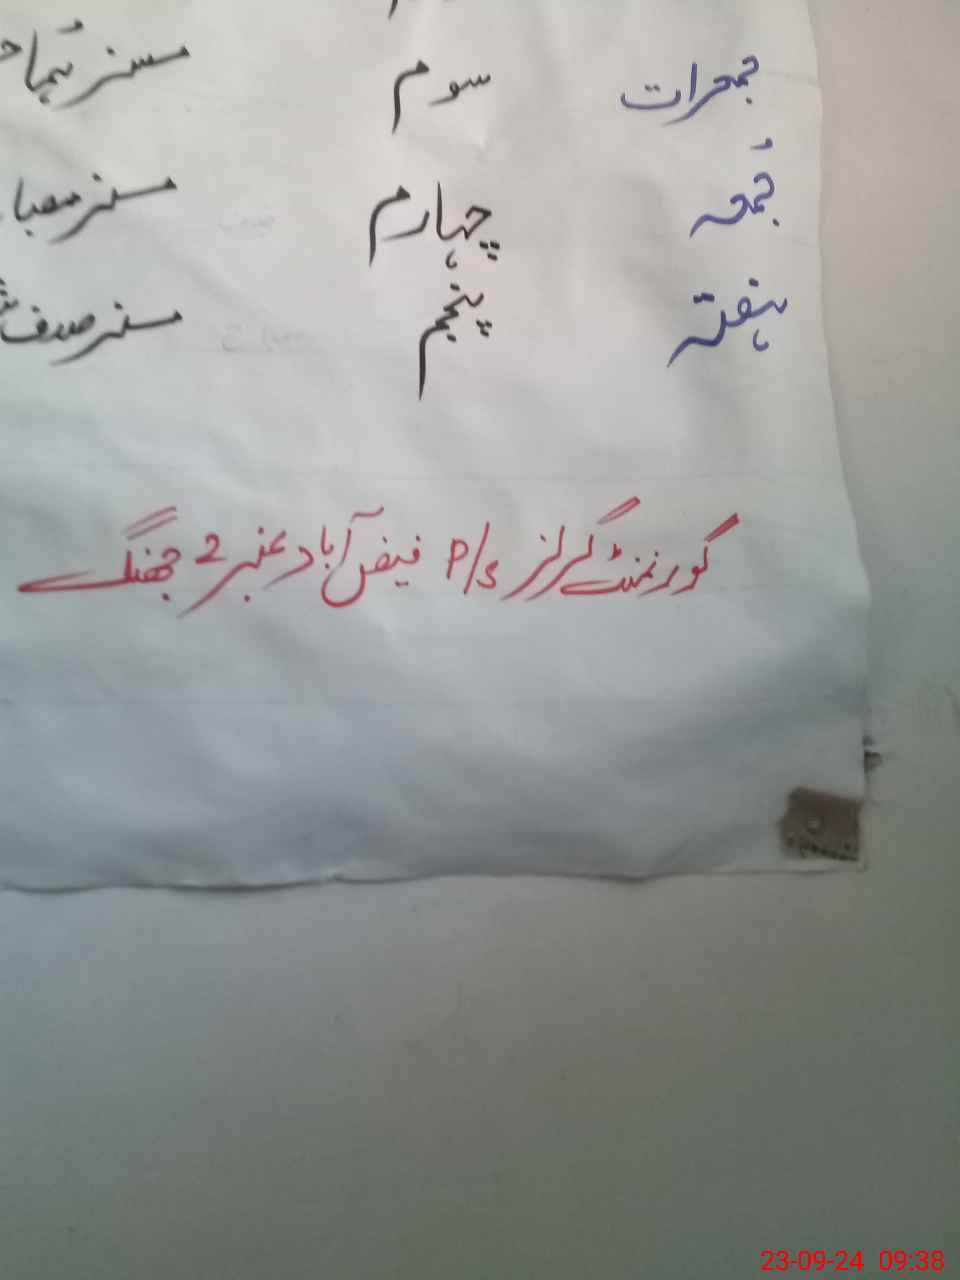 جمعرات سوم مسز
جمعہ چہارم مسز صبا
ہفتہ پنجم مسز صدف
گورنمنٹ گرلز P/S فیض آباد نمبر 2 جھنگ
23-09-24 09:38